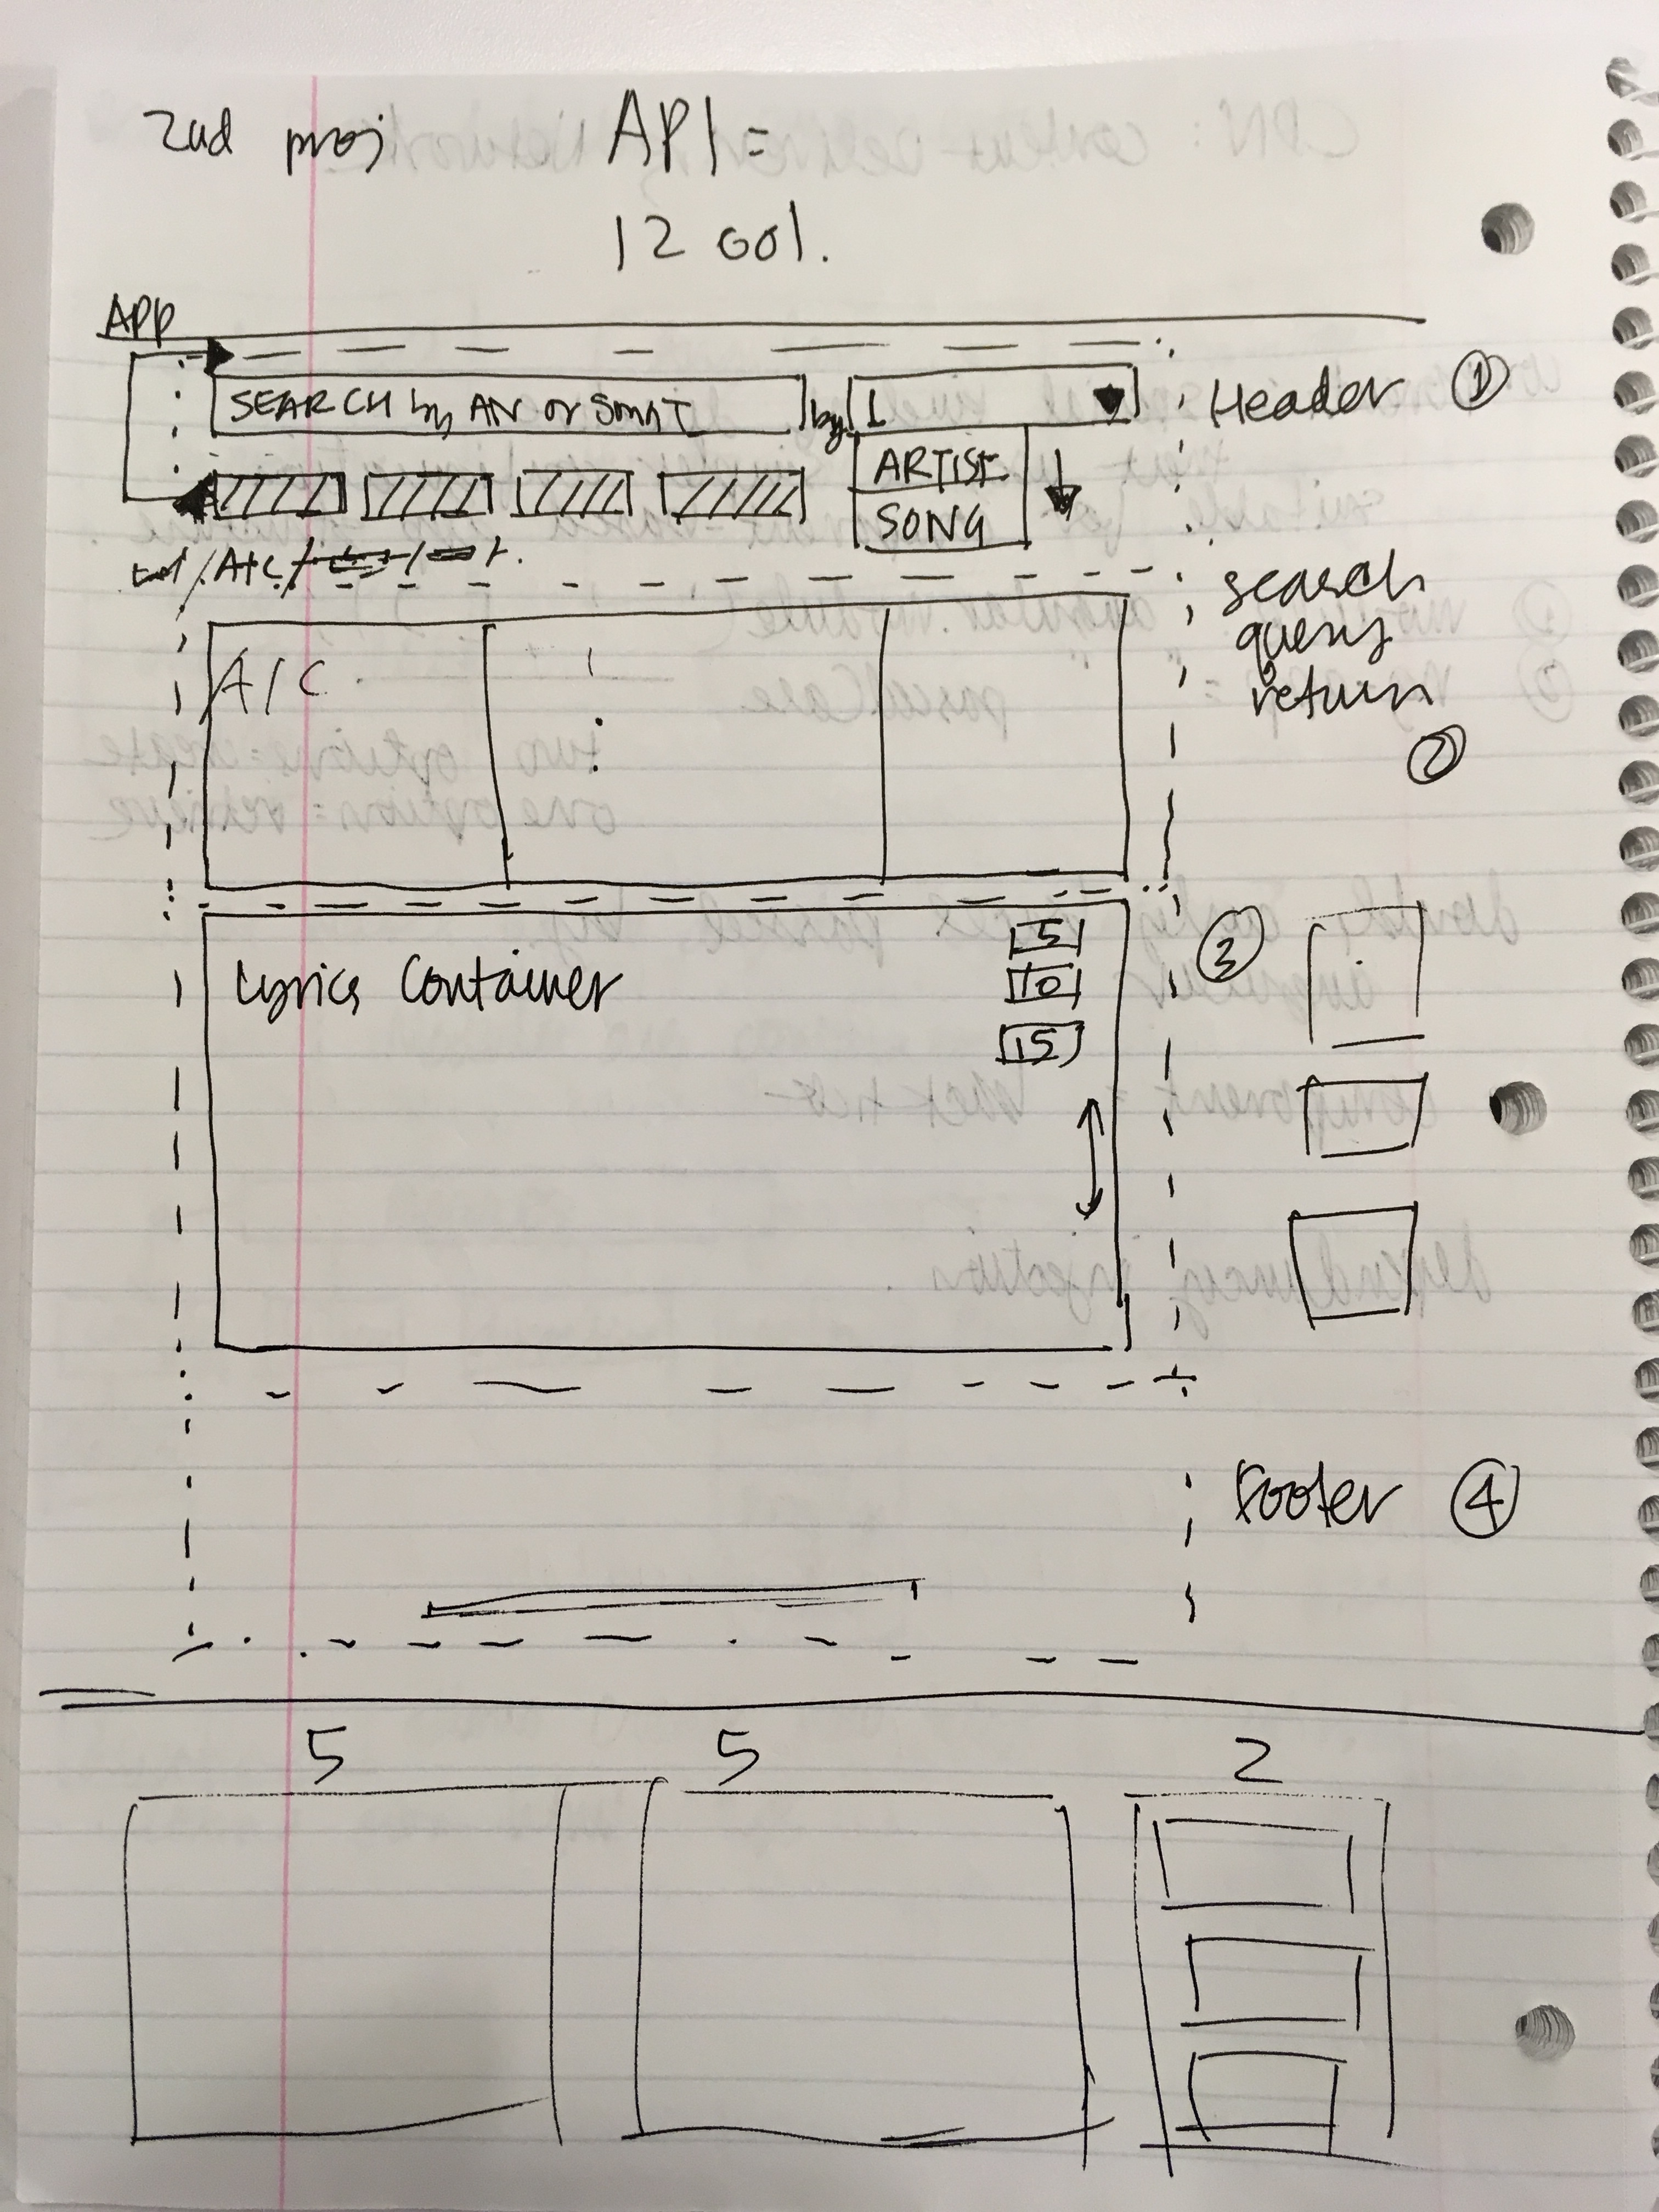 2nd proj API =
12 col.
APP
SEARCH by AN or by 1
Header ①
ARTIST
SONG
/A/C/
search
query
return
②
A/C
Lyrics Container
5
10
15
③
Footer ④
5 5 2